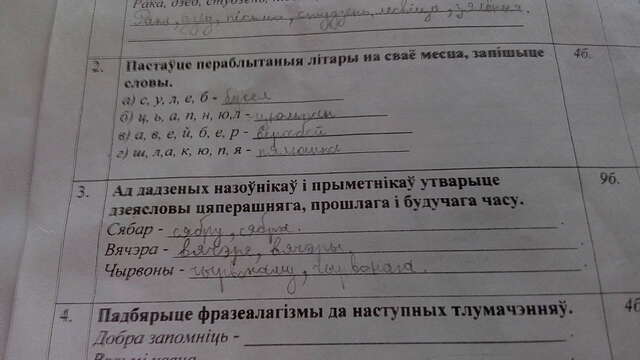 Рака, дзед, студзень,
2. Пастаўце пераблытаныя літары на сваё месца, запішыце 4б.
словы.
а) с, у, л, е, б -
б) ц, ь, а, п, н, ю, л -
в) а, в, е, й, б, е, р - верабей
г) ш, л, а, к, ю, п, я -
3. Ад дадзеных назоўнікаў і прыметнікаў утварыце 9б.
дзеясловы цяперашняга, прошлага і будучага часу.
Сябар - сябру, сябра.
Вячэра - вячэра, вячэры.
Чырвоны - чырвонаму, чырвонага.
4. Падбярыце фразеалагізмы да наступных тлумачэнняў. 4б
Добра запомніць -